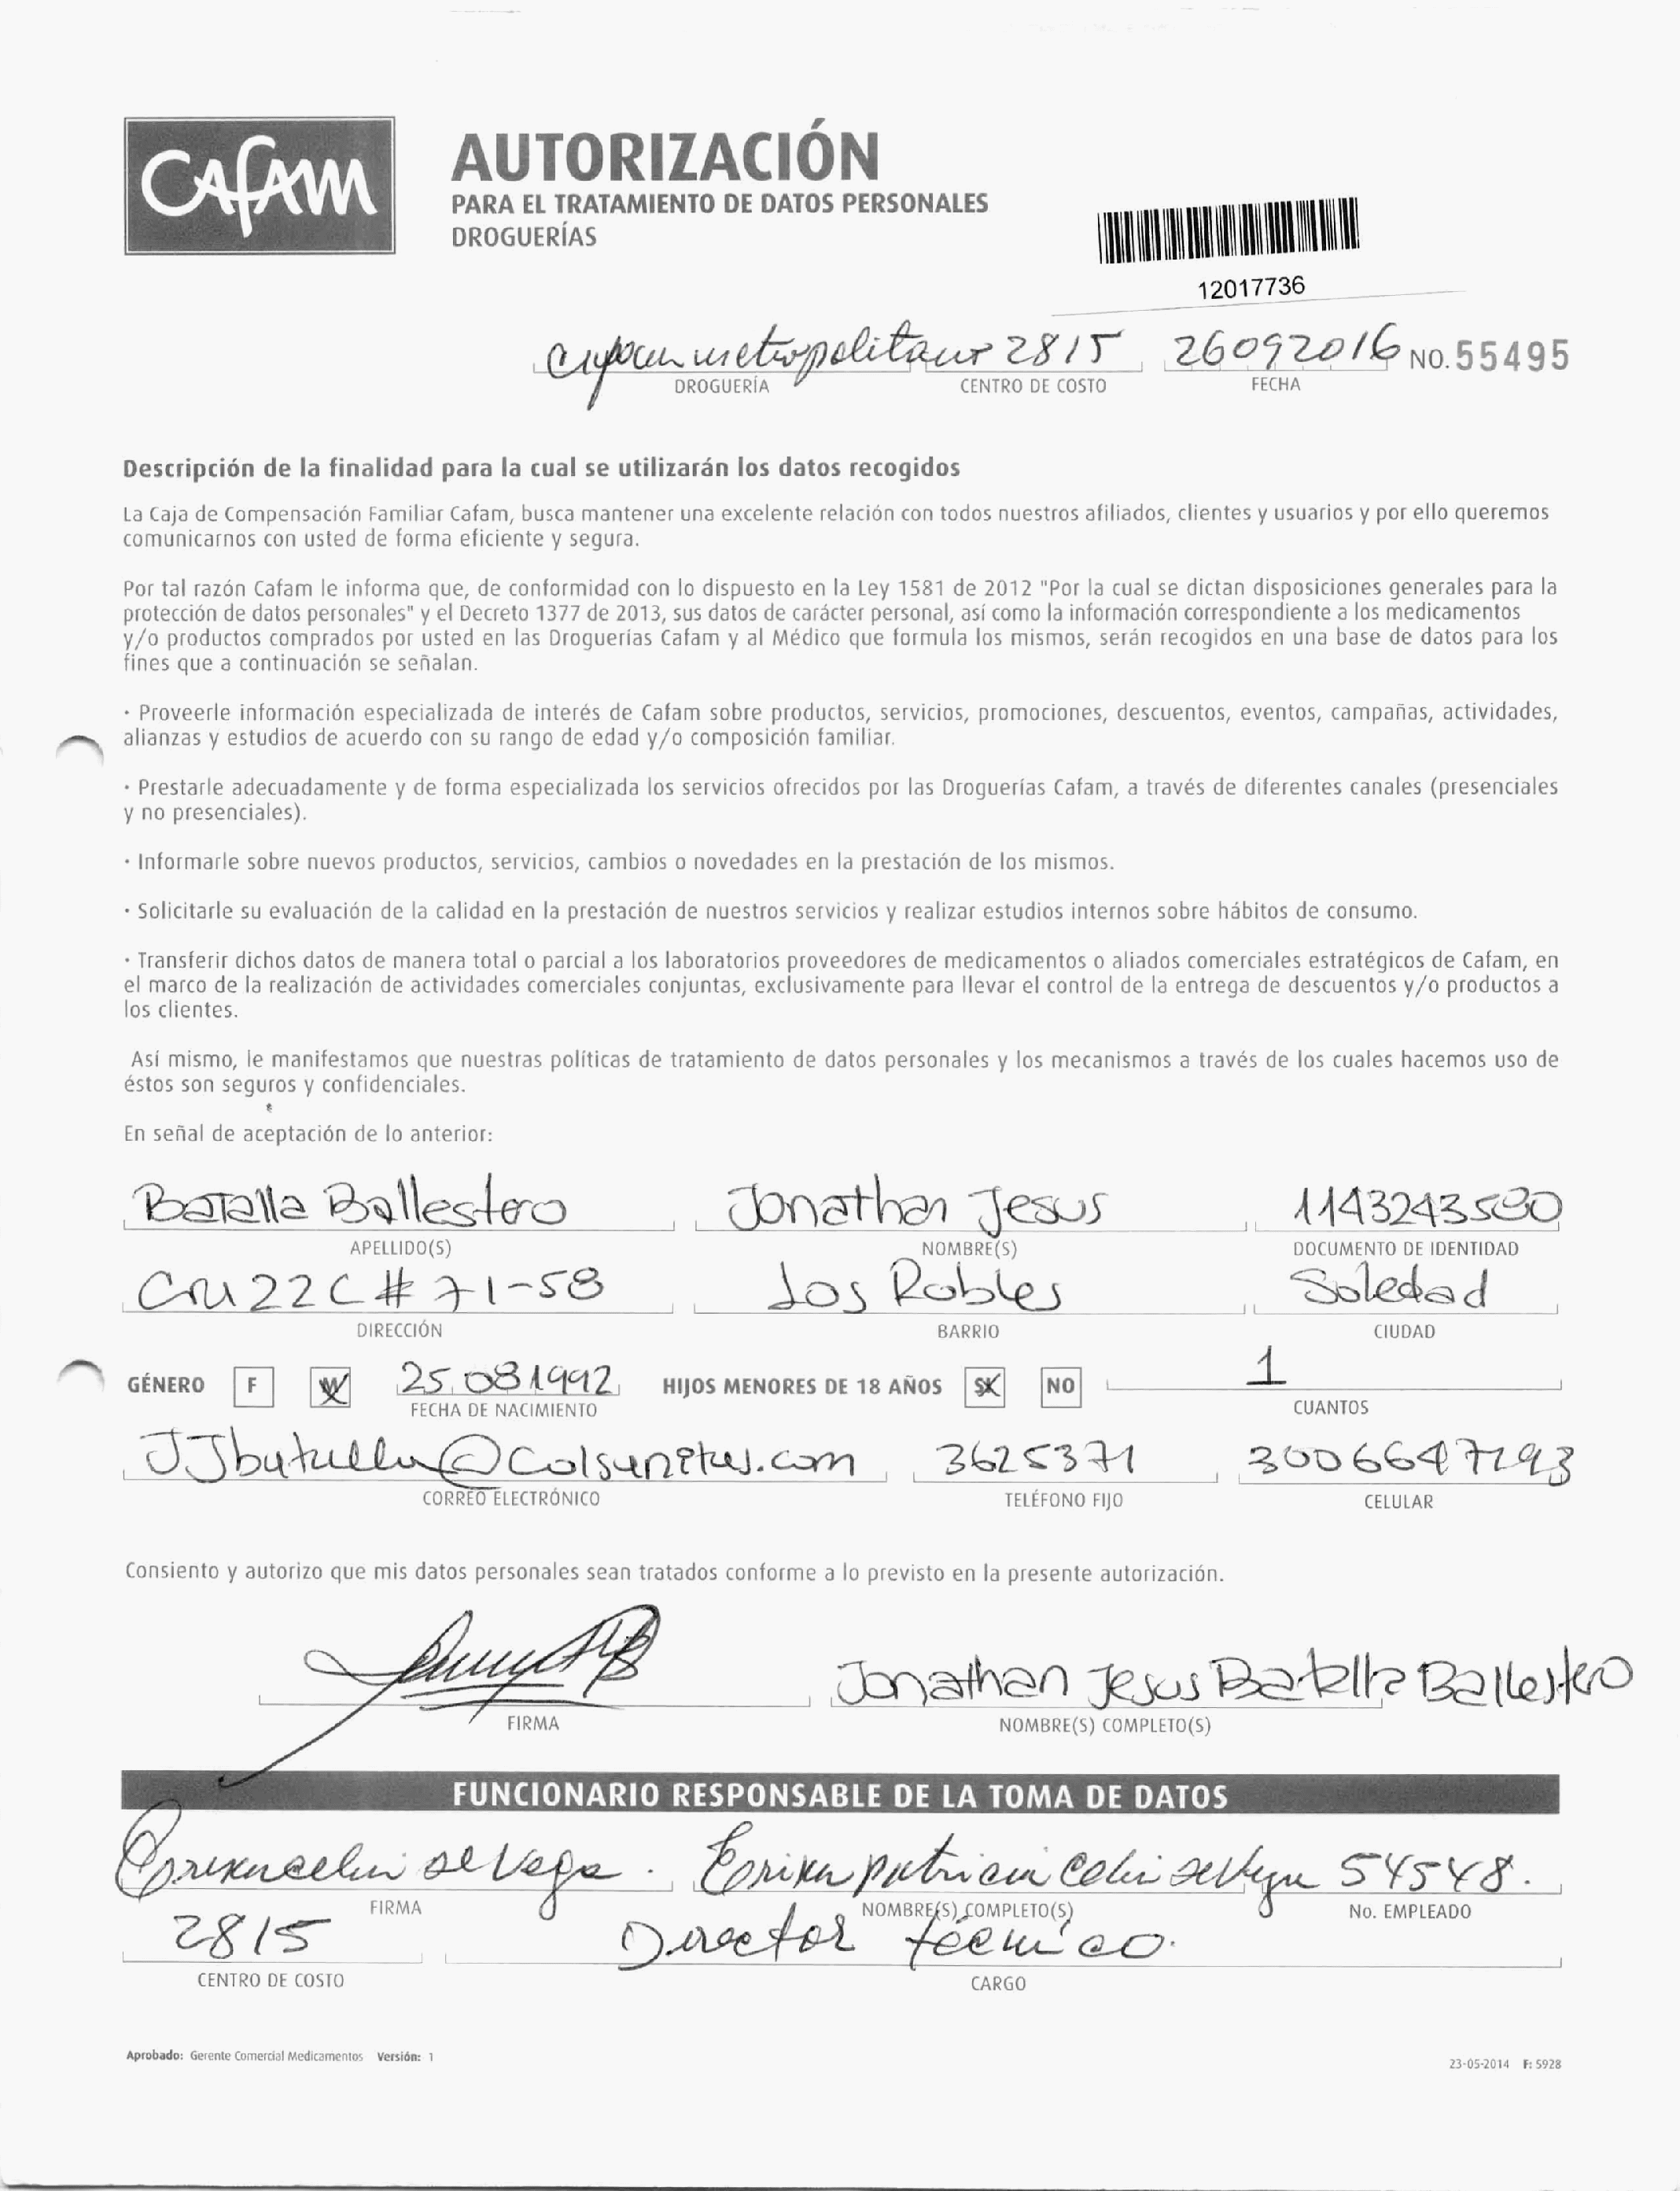 CAFAM
AUTORIZACIÓN
PARA EL TRATAMIENTO DE DATOS PERSONALES
DROGUERÍAS
12017736
metropolitano 2815 26092016 NO. 55495
DROGUERÍA CENTRO DE COSTO FECHA
Descripción de la finalidad para la cual se utilizarán los datos recogidos
La Caja de Compensación Familiar Cafam, busca mantener una excelente relación con todos nuestros afiliados, clientes y usuarios y por ello queremos
comunicarnos con usted de forma eficiente y segura.
Por tal razón Cafam le informa que, de conformidad con lo dispuesto en la Ley 1581 de 2012 "Por la cual se dictan disposiciones generales para la
protección de datos personales" y el Decreto 1377 de 2013, sus datos de carácter personal, así como la información correspondiente a los medicamentos
y/o productos comprados por usted en las Droguerías Cafam y al Médico que formula los mismos, serán recogidos en una base de datos para los
fines que a continuación se señalan.
· Proveerle información especializada de interés de Cafam sobre productos, servicios, promociones, descuentos, eventos, campañas, actividades,
alianzas y estudios de acuerdo con su rango de edad y/o composición familiar.
· Prestarle adecuadamente y de forma especializada los servicios ofrecidos por las Droguerías Cafam, a través de diferentes canales (presenciales
y no presenciales).
· Informarle sobre nuevos productos, servicios, cambios o novedades en la prestación de los mismos.
· Solicitarle su evaluación de la calidad en la prestación de nuestros servicios y realizar estudios internos sobre hábitos de consumo.
· Transferir dichos datos de manera total o parcial a los laboratorios proveedores de medicamentos o aliados comerciales estratégicos de Cafam, en
el marco de la realización de actividades comerciales conjuntas, exclusivamente para llevar el control de la entrega de descuentos y/o productos a
los clientes.
Así mismo, le manifestamos que nuestras políticas de tratamiento de datos personales y los mecanismos a través de los cuales hacemos uso de
éstos son seguros y confidenciales.
En señal de aceptación de lo anterior:
Batalla Ballestero Jonathan Jesus 1143243580
APELLIDO(S) NOMBRE(S) DOCUMENTO DE IDENTIDAD
22C # 71-58 Los Robles Soledad
DIRECCIÓN BARRIO CIUDAD
GÉNERO F M 25.081992 HIJOS MENORES DE 18 AÑOS SI NO 1
FECHA DE NACIMIENTO CUANTOS
JJbatalla@Colsanitas.com 3625371 3006647293
CORREO ELECTRÓNICO TELÉFONO FIJO CELULAR
Consiento y autorizo que mis datos personales sean tratados conforme a lo previsto en la presente autorización.
Jonathan Jesus Batalla Ballestero
FIRMA NOMBRE(S) COMPLETO(S)
FUNCIONARIO RESPONSABLE DE LA TOMA DE DATOS
de Vega. Erika patricia de Vega 54548.
FIRMA NOMBRE(S) COMPLETO(S) No. EMPLEADO
2815 Director técnico.
CENTRO DE COSTO CARGO
Aprobado: Gerente Comercial Medicamentos Versión: 1 23-05-2014 F: 5928